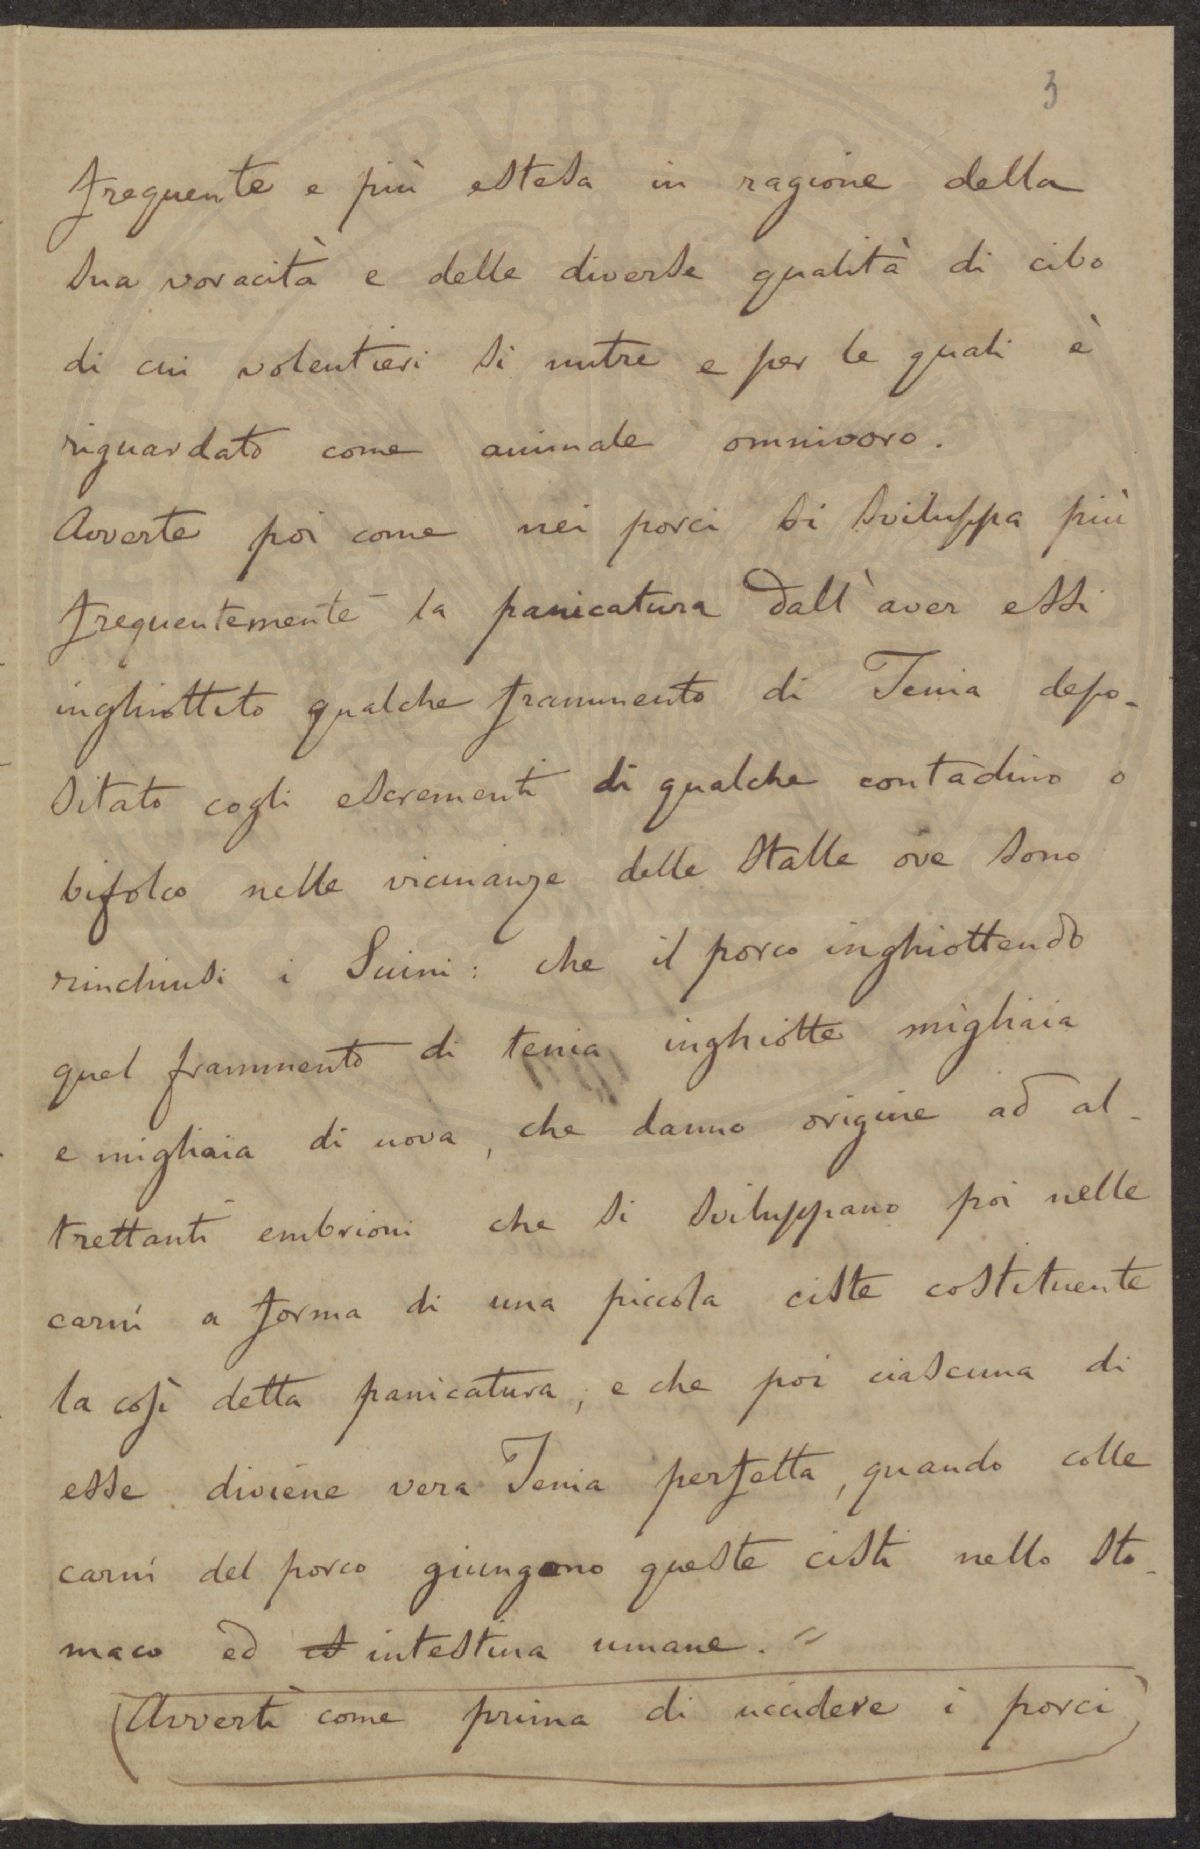 3
frequente e più estesa in ragione della
sua voracità e delle diverse qualità di cibo
di cui volentieri si nutre e per le quali è
riguardato come animale omnivoro.
Avverte poi come nei porci si sviluppa più
frequentemente la panicatura dall'aver essi
inghiottito qualche frammento di Tenia depo-
sitato cogli escrementi di qualche contadino o
bifolco nelle vicinanze delle stalle ove sono
rinchiusi i Suini: che il porco inghiottendo
quel frammento di tenia inghiotte migliaia
e migliaia di uova, che danno origine ad al-
trettanti embrioni che si sviluppano poi nelle
carni a forma di una piccola ciste costituente
la così detta panicatura, e che poi ciascuna di
esse diviene vera Tenia perfetta, quando colle
carni del porco giungono queste cisti nello sto-
maco ed intestina umane. "
(Avvertì come prima di uccidere i porci)